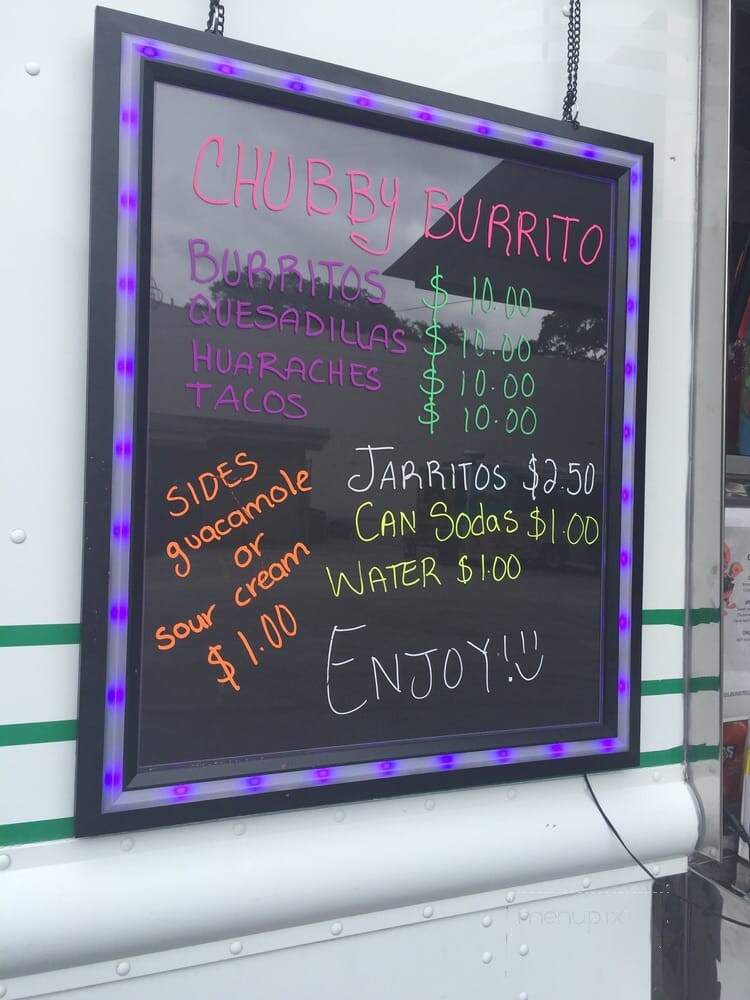 CHUBBY BURRITO
BURRITOS $ 10.00
QUESADILLAS $ 10.00
HUARACHES $ 10.00
TACOS $ 10.00
SIDES
guacamole
or
sour cream
$1.00
JARRITOS $2.50
CAN SodaS $1.00
WATER $1.00
ENJOY!!!
menupix